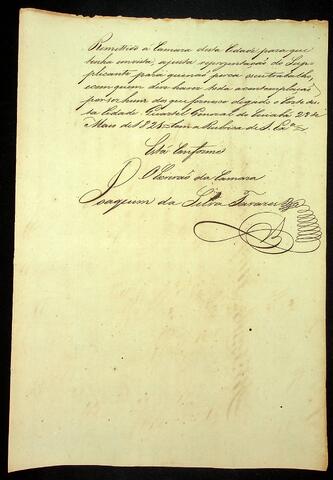 Remettido á Camara desta Cidade para que
tenha em vista, a justa representação do Sup-
plicante para que não perca o seu trabalho,
e com quem deve haver toda a contemplação
por ser hum dos que formou o
ta Cidade Quartel General do Cuiabá 27 de
Maio de 1824
Está Conforme
O Escrivão da Camara
Joaquim da Silva Tavares